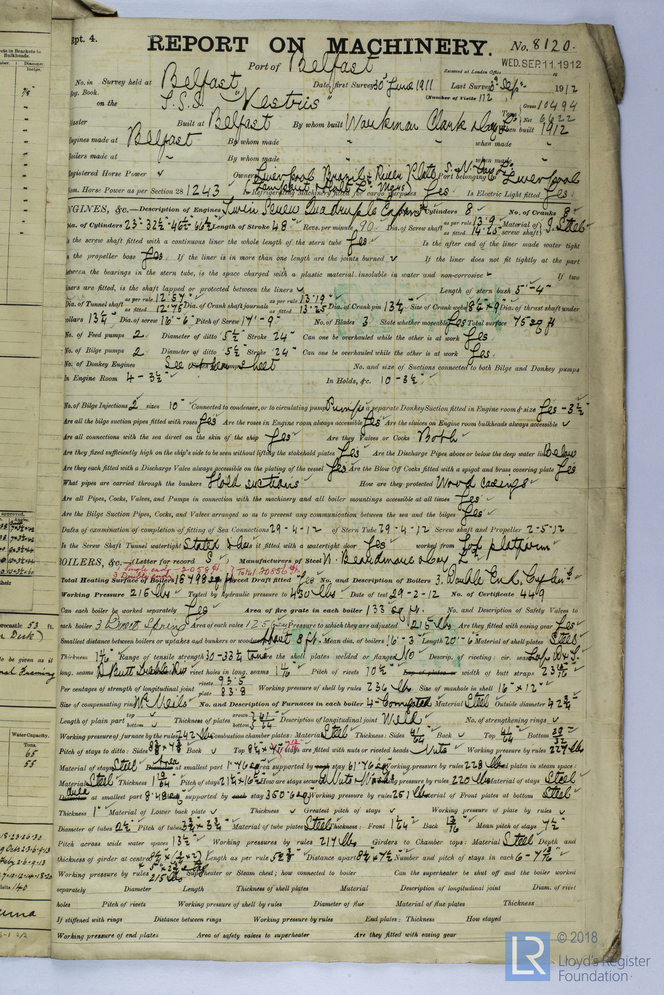 Rpt. 4.
REPORT ON MACHINERY.
No. 8120.
Port of Belfast
WED. SEP 11 1912
Received at London Office
No. in Survey held at Belfast Date, first Survey 30th June 1911 Last Survey 3rd Sept 1912
Reg. Book.
(Number of Visits 112
on the T.S.S. "Vestris"
Gross 10494
Net 6622
Master Built at Belfast By whom built Workman Clark & Co Ld When built 1912
Engines made at Belfast By whom made " when made "
Boilers made at " By whom made " when made "
Registered Horse Power Owners Liverpool Brazil & River Plate S. N. Co Port belonging to Liverpool
Nom. Horse Power as per Section 28 1243 Is Refrigerating Machinery fitted for cargo purposes Yes Is Electric Light fitted Yes
ENGINES, &c.—Description of Engines Twin Screw Quadruple Expansn No. of Cylinders 8 No. of Cranks 8
Dia. of Cylinders Length of Stroke 48" Revs. per minute 90 Dia. of Screw shaft as per rule 13.9 as fitted 14.25 Material of screw shaft I. Steel
Is the screw shaft fitted with a continuous liner the whole length of the stern tube Yes Is the after end of the liner made water tight
in the propeller boss Yes If the liner is in more than one length are the joints burned If the liner does not fit tightly at the part
between the bearings in the stern tube, is the space charged with a plastic material insoluble in water and non-corrosive If two
liners are fitted, is the shaft lapped or protected between the liners Length of stern bush 5'-4"
Dia. of Tunnel shaft as per rule 12.57" as fitted 12.75 Dia. of Crank shaft journals as per rule 13.19" as fitted 13.25 Dia. of Crank pin 13½" Size of Crank webs Dia. of thrust shaft under
collars 13½" Dia. of screw 16'-6" Pitch of Screw 17'-9" No. of Blades 3 State whether moveable Yes Total surface 75 sq ft
No. of Feed pumps 2 Diameter of ditto 5½" Stroke 24" Can one be overhauled while the other is at work Yes
No. of Bilge pumps 2 Diameter of ditto 5½" Stroke 24" Can one be overhauled while the other is at work Yes
No. of Donkey Engines See other sheet No. and size of Suctions connected to both Bilge and Donkey pumps
In Engine Room 4 - 3½" In Holds, &c. 10 - 3½"
No. of Bilge Injections 2 sizes 10" Connected to condenser, or to circulating pump Pumps Is a separate Donkey Suction fitted in Engine room & size Yes - 3½"
Are all the bilge suction pipes fitted with roses Yes Are the roses in Engine room always accessible Yes Are the sluices on Engine room bulkheads always accessible
Are all connections with the sea direct on the skin of the ship Yes Are they Valves or Cocks Both
Are they fixed sufficiently high on the ship's side to be seen without lifting the stokehold plates Yes Are the Discharge Pipes above or below the deep water line Below
Are they each fitted with a Discharge Valve always accessible on the plating of the vessel Yes Are the Blow Off Cocks fitted with a spigot and brass covering plate Yes
What pipes are carried through the bunkers Hold suctions How are they protected Wood casings
Are all Pipes, Cocks, Valves, and Pumps in connection with the machinery and all boiler mountings accessible at all times Yes
Are the Bilge Suction Pipes, Cocks, and Valves arranged so as to prevent any communication between the sea and the bilges Yes
Dates of examination of completion of fitting of Sea Connections 29-4-12 of Stern Tube 29-4-12 Screw shaft and Propeller 2-5-12
Is the Screw Shaft Tunnel watertight Is it fitted with a watertight door Yes worked from Top platform
BOILERS, &c.—(Letter for record S) Manufacturers of Steel W. Beardmore & Coy Ld
Total Heating Surface of Boilers 15498 sq ft Is Forced Draft fitted Yes No. and Description of Boilers 3. Double End. Cylin'l
Working Pressure 215 lbs Tested by hydraulic pressure to 430 lbs Date of test 29-2-12 No. of Certificate 4449
Can each boiler be worked separately Yes Area of fire grate in each boiler 133 sq ft. No. and Description of Safety Valves to
each boiler 3 Direct Spring Area of each valve Pressure to which they are adjusted 215 lbs Are they fitted with easing gear Yes
Smallest distance between boilers or uptakes and bunkers or woodwork About 8 ft. Mean dia. of boilers 16'-3" Length 20'-6" Material of shell plates Steel
Thickness Range of tensile strength Are the shell plates welded or flanged No Descrip. of riveting: cir. seams
long. seams rivet holes in long. seams Pitch of rivets 10½" Lap of plates or width of butt straps
Per centages of strength of longitudinal joint rivets 93.5 plate 83.8 Working pressure of shell by rules 236 lbs Size of manhole in shell 16" x 12"
Size of compensating ring McNeils No. and Description of Furnaces in each boiler 4 - Corrugated Material Steel Outside diameter
Length of plain part top bottom Thickness of plates crown bottom Description of longitudinal joint Weld No. of strengthening rings
Working pressure of furnace by the rules Combustion chamber plates: Material Steel Thickness: Sides Back Top Bottom
Pitch of stays to ditto: Sides Back Top If stays are fitted with nuts or riveted heads Nuts Working pressure by rules 227 lbs
Material of stays Steel at smallest part Area supported by each stay Working pressure by rules 228 lbs End plates in steam space:
Material Steel Thickness Pitch of stays How are stays secured Working pressure by rules 220 lbs Material of stays Steel
at smallest part Area supported by each stay Working pressure by rules 251 lbs Material of Front plates at bottom Steel
Thickness 1" Material of Lower back plate Thickness Greatest pitch of stays Working pressure of plate by rules
Diameter of tubes 2½" Pitch of tubes Material of tube plates Steel Thickness: Front Back Mean pitch of stays 7½"
Pitch across wide water spaces 13½" Working pressures by rules 217 lbs Girders to Chamber tops: Material Steel Depth and
thickness of girder at centre Length as per rule Distance apart Number and pitch of stays in each
Working pressure by rules 215 lbs Superheater or Steam chest; how connected to boiler Can the superheater be shut off and the boiler worked
separately Diameter Length Thickness of shell plates Material Description of longitudinal joint Diam. of rivet
holes Pitch of rivets Working pressure of shell by rules Diameter of flue Material of flue plates Thickness
If stiffened with rings Distance between rings Working pressure by rules End plates: Thickness How stayed
Working pressure of end plates Area of safety valves to superheater Are they fitted with easing gear
LR
© 2018
Lloyd's Register
Foundation